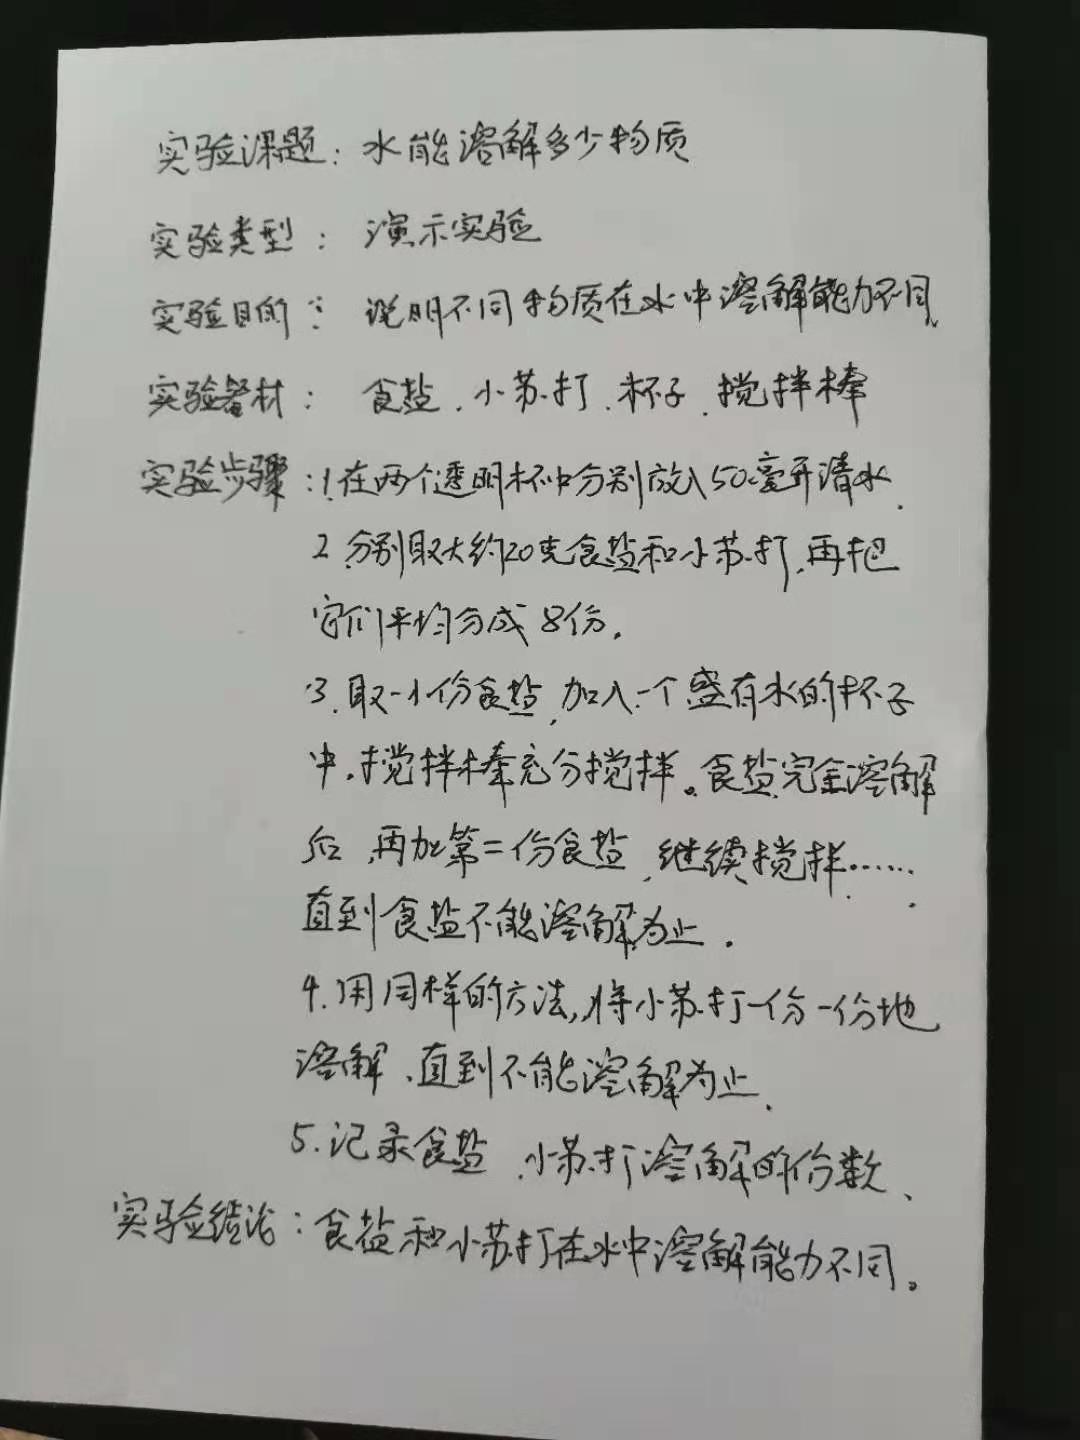 实验课题：水能溶解多少物质
实验类型：演示实验
实验目的：说明不同物质在水中溶解能力不同、
实验器材：食盐、小苏打、杯子、搅拌棒
实验步骤：1.在两个透明杯中分别放入50毫升清水.
2.分别取大约20克食盐和小苏打,再把
它们平均分成8份.
3.取一小份食盐,加入一个盛有水的杯子
中,搅拌棒充分搅拌。食盐完全溶解
后,再加第二份食盐,继续搅拌……
直到食盐不能溶解为止.
4.用同样的方法,将小苏打一份一份地
溶解、直到不能溶解为止、
5.记录食盐、小苏打溶解的份数、
实验结论：食盐和小苏打在水中溶解能力不同。